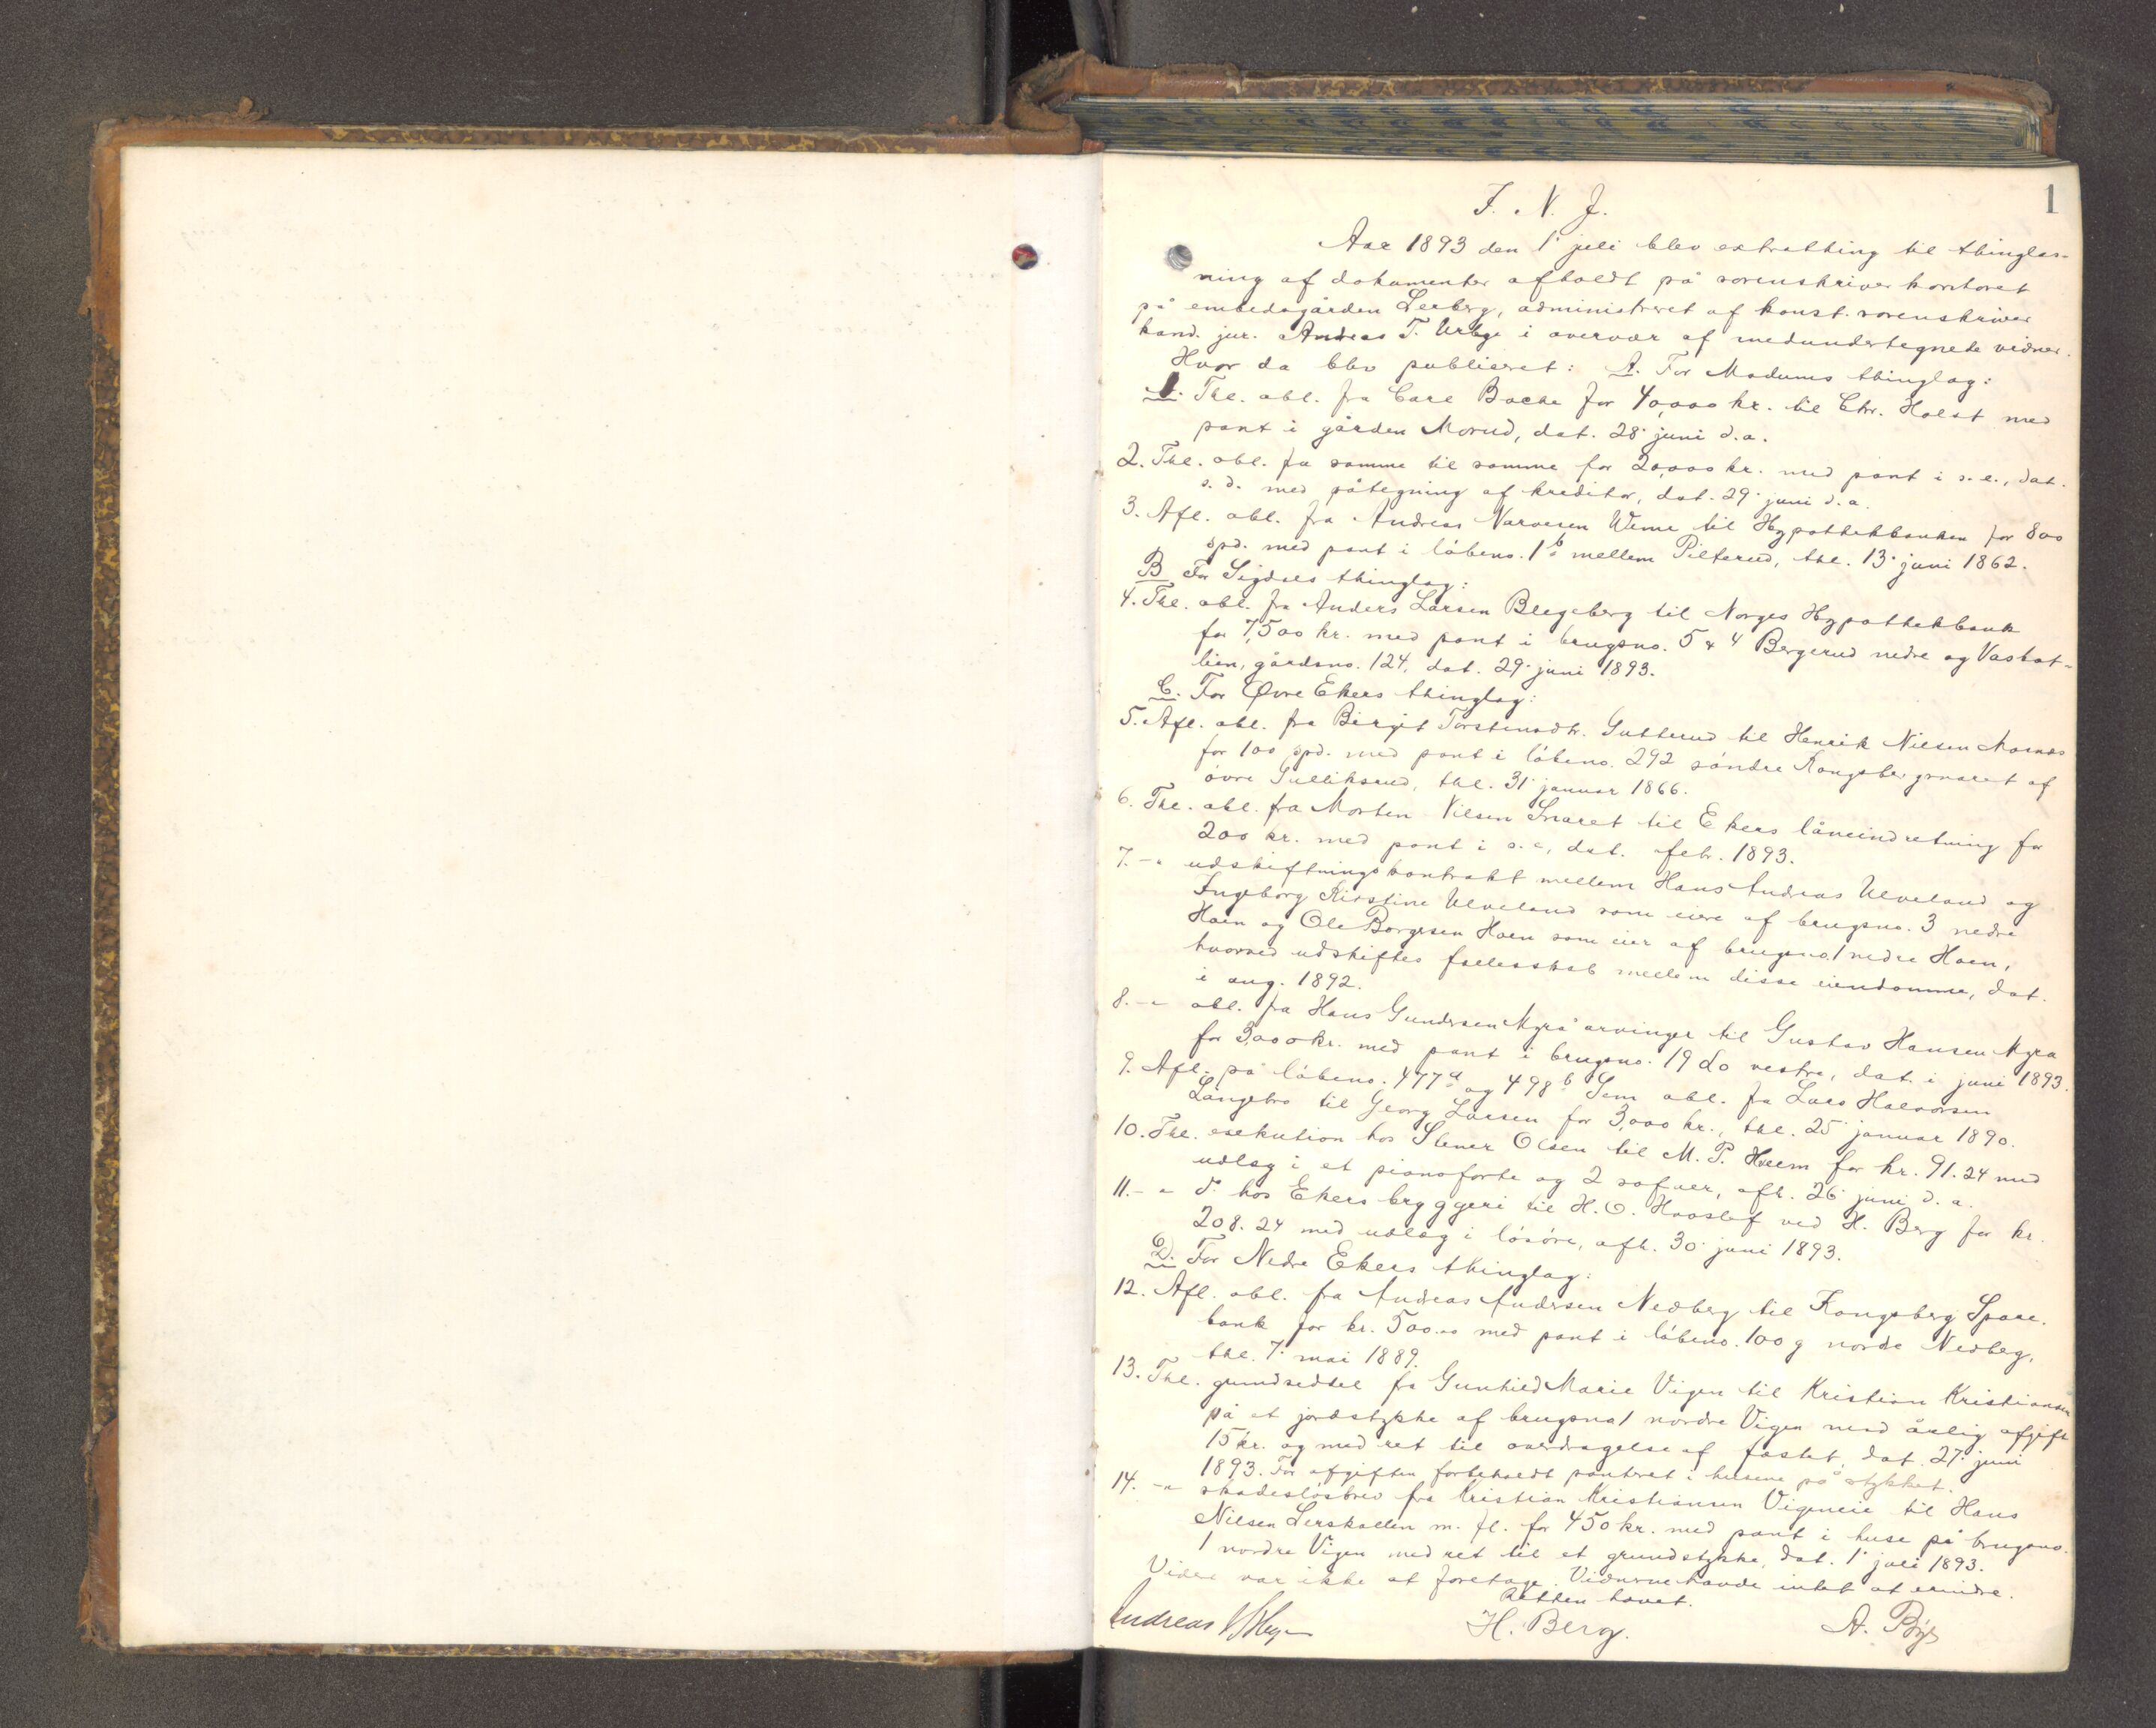 1
I. N. J.
Aar 1893 den 1' juli blev extrathing til thinglæs-
ning af dokumenter afholdt på sorenskriverkontoret
på embedsgården Leeberg, administreret af konst. sorenskriver
kand. jur. Andreas T. Urbye i overvær af medundertegnede vidner.
Hvor da blev publiseret: A. For Modums thinglag:
1. Thl. obl. fra Carl Bache for 40,000 kr. til Chr. Holst med
pant i gården Morud, dat. 28' juni d.a.
2. Thl. obl. fra samme til samme for 20,000 kr. med pant i s. e., dat.
s. d. med påtegning af kreditor, dat. 29' juni d.a.
3. Afl. obl. fra Andreas Narvesen Weme til Hypothekbanken for 800
spd. med pant i löbeno. 1 b mellem Pilterud, thl. 13' juni 1862.
B For Sigdals thinglag:
4. Thl. obl. fra Anders Larsen Blegeberg til Norges Hypothekbank
for 7,500 kr. med pant i brugsno. 5 & 4 Bergerud nedre og Vasbot-
lien, gårdsno. 124, dat. 29' juni 1893.
C. For Øvre Ekers thinglag:
5. Afl. obl. fra Birgit Torstensdtr. Gutterud til Henrik Nilsen Mornæs
for 100 spd. med pant i löbeno. 292 söndre Kongsbergsnaret af
övre Gulliksrud, thl. 31' januar 1866.
6. Thl. obl. fra Morten Nilsen Snaret til Ekers låneindretning for
200 kr. med pant i s. e, dat. febr. 1893.
7. -"- udskiftningskontrakt mellem Hans Andreas Ulveland og
Ingeborg Kirstine Ulveland som eiere af brugsno. 3 nedre
Hoen og Ole Borgersen Hoen som eier af brugsno. 1 nedre Hoen,
hvorved udskiftes fællesskab mellem disse eiendomme, dat.
i aug. 1892.
8. -"- obl. fra Hans Gundersen Myra arvinger til Gustav Hansen Myra
for 3,000 kr. med pant i brugsno. 19 Lo vestre, dat. i juni 1893.
9. Afl. på löbeno. 477 a og 498 b Sem obl. fra Lars Halvorsen
Langebro til Georg Larsen for 3,000 kr., thl. 25' januar 1890.
10. Thl. esekution hos Stener Olsen til M. P. Hveem for kr. 91.24 med
udlæg i et pianoforte og 2 sofaer, afh. 26' juni d. a.
11. -"- do hos Ekers bryggeri til H. O. Haaslef ved H. Berg for kr.
208.24 med udlæg i lösöre, afh. 30' juni 1893.
D. For Nedre Ekers thinglag:
12. Afl. obl. fra Andreas Andersen Nedberg til Kongsberg Spare-
bank for kr. 500.00 med pant i löbeno. 100 g nordre Nedberg,
thl. 7' mai 1889.
13. Thl. grundsedsel fra Gunhild Marie Vigen til Kristian Kristiansen
på et jordstykke af brugsno 1 nordre Vigen med årlig afgift
15 kr. og med ret til overdragelse af fæstet, dat. 27' juni
1893. For afgiften forbeholdt panteret i husene på stykket.
14. -"- skadeslösbrev fra Kristian Kristiansen Vigeneie til Hans
Nilsen Lerskallen m. fl. for 450 kr. med pant i huse på brugsno.
1 nordre Vigen med ret til et grundstykke, dat. 1' juli 1893.
Videre var ikke at foretage. Vidnerne havde intet at erindre.
Retten hævet.
Andreas Urbye H. Berg. A. Böe